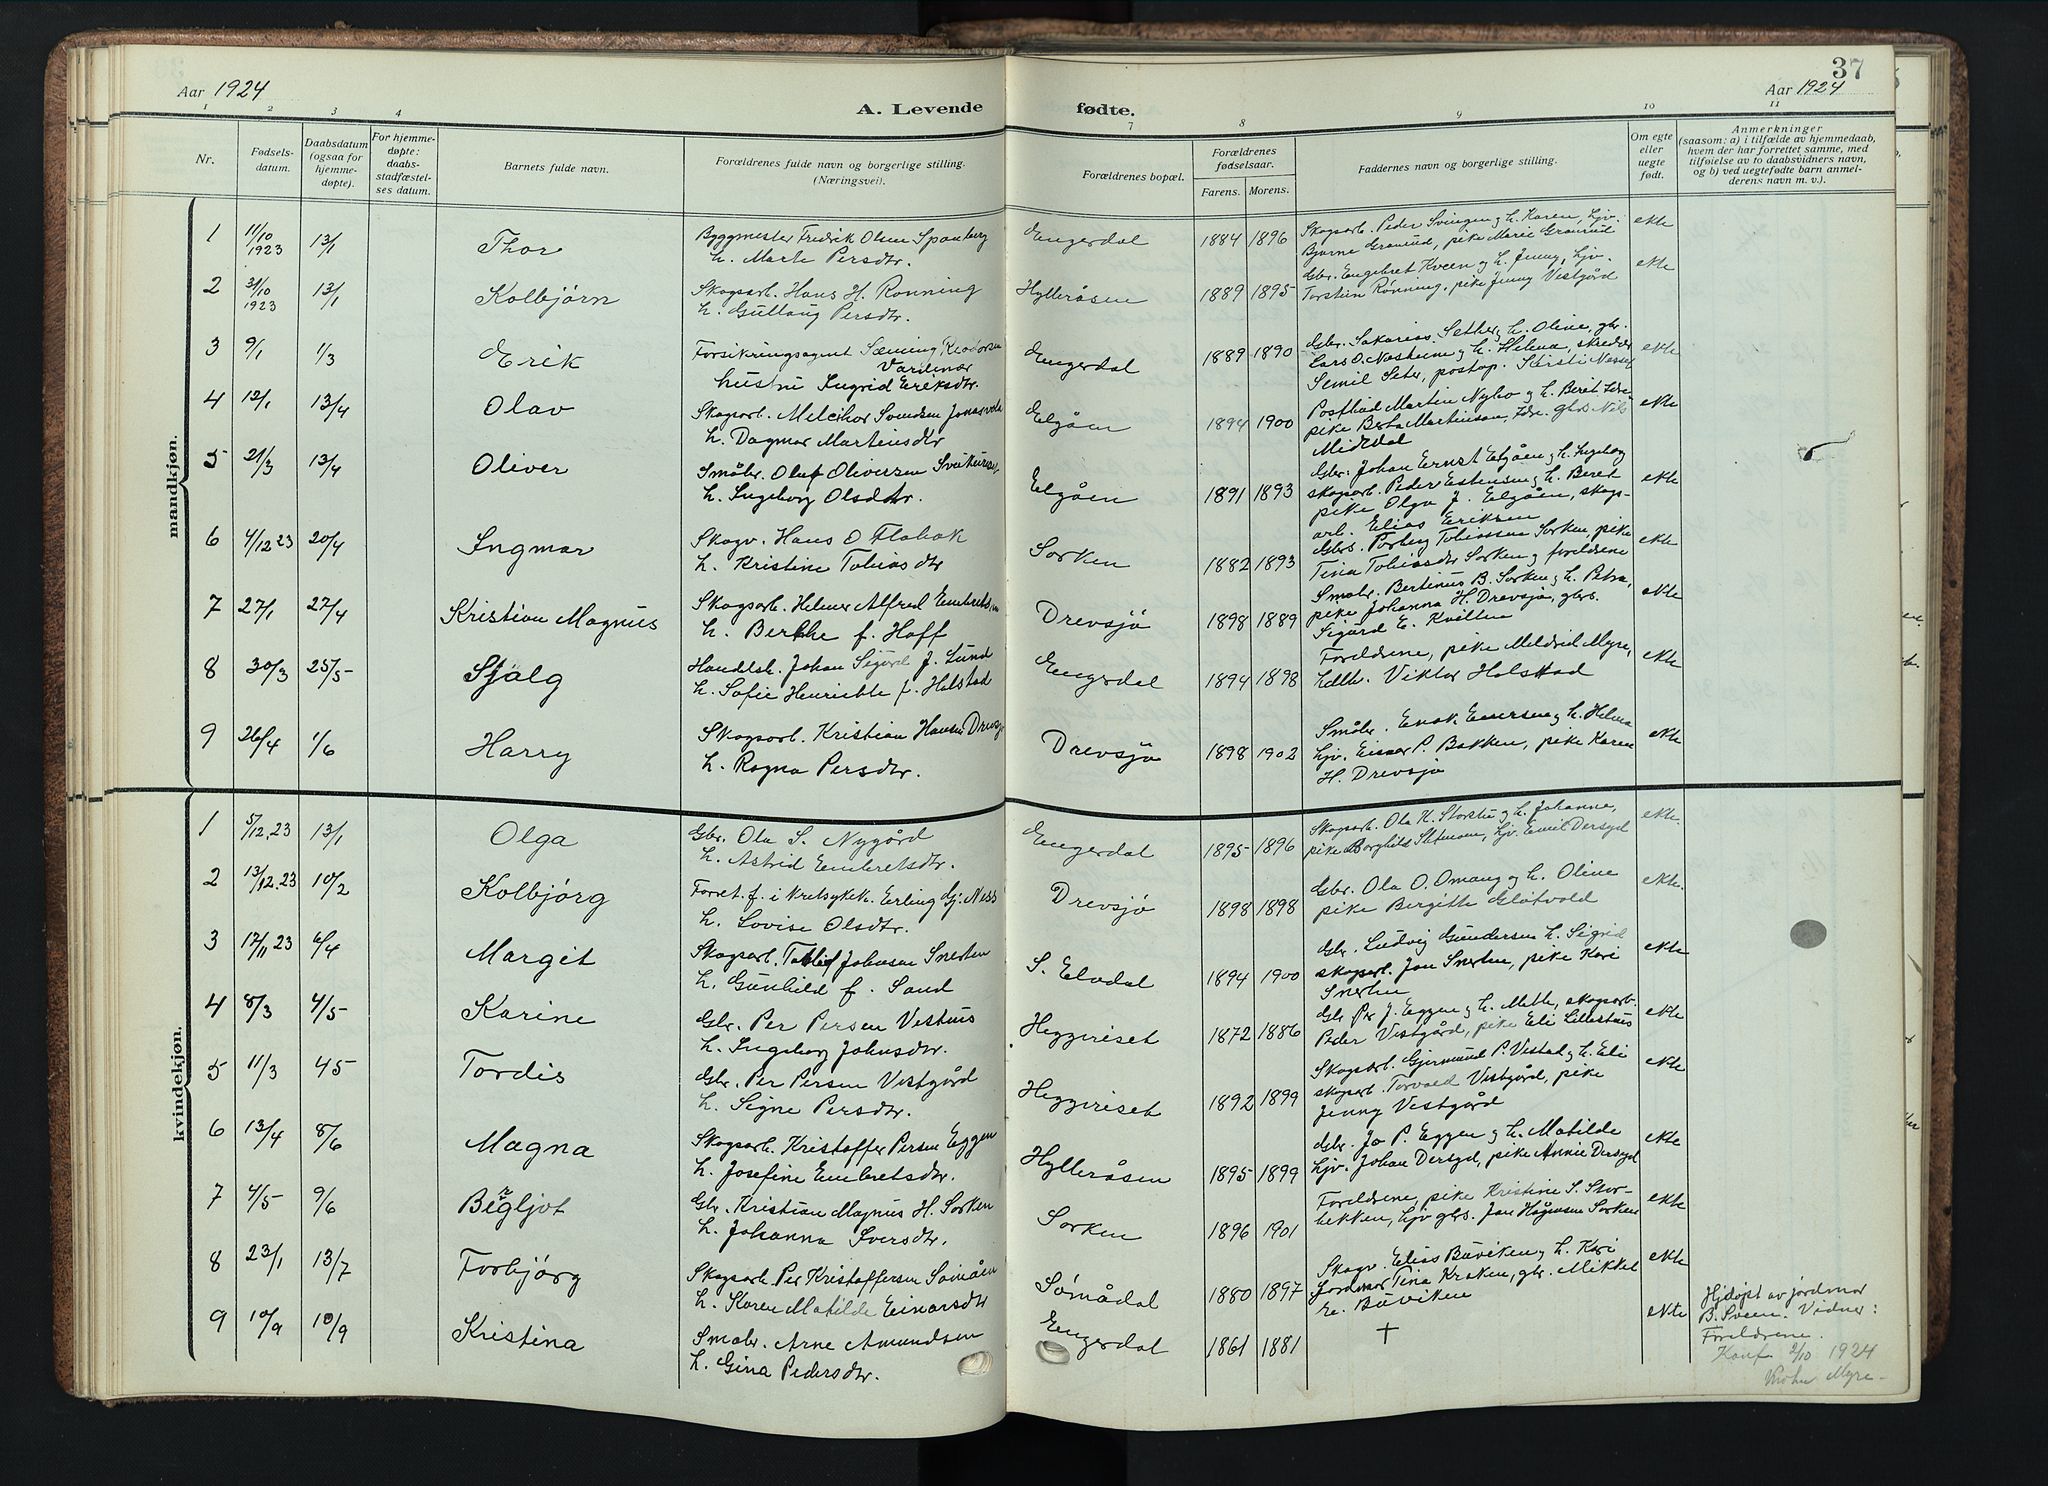 37
Aar 1924
Aar 1924
A. Levende fødte.
1 2 3 4 7 8 9 10 11
Nr.
Fødsels-
datum.
Daabsdatum
(ogsaa for
hjemme-
døpte).
For hjemme-
døpte:
daabs-
stadfæstel-
ses datum.
Barnets fulde navn.
Forældrenes fulde navn og borgerlige stilling.
(Næringsvei).
Forældrenes bopæl.
Forældrenes
fødselsaar.
Farens. Morens.
Faddernes navn og borgerlige stilling.
Om egte
eller
uegte
født.
Anmerkninger
(saasom: a) i tilfælde av hjemmedaab,
hvem der har forrettet samme, med
tilføielse av to daabsvidners navn,
og b) ved uegtefødte barn anmel-
derens navn m. v.).
mandkjøn.
1 11/10 1923 13/1 Thor
Byggmester Fredrik Olsen Spanberg
h. Marte Persdtr.
Engerdal 1884 1896
Skogsarb. Peder Svingen og h. Karen, hjv.
Bjarne Granrud, pike Marie Granrud
ekte
2 31/10 1923 13/1 Kolbjørn
Skogsarb. Hans H. Rønning
h. Gullaug Persdtr.
Hylleråsen 1889 1895
Gbr. Engebret Kveen og h. Jenny, hjv.
Torstein Rønning, pike Jenny Vestgård
ekte
3 9/1 1/3 Erik
Forsikringsagent Sæming
hustru Ingrid Eriksdtr.
Engerdal 1889 1890
Gbr. Sakarias Sether, h. Oline, gbr.
Lars O. Næsheim og h. Helena, skredder
Semil Seter, postop.
ekte
4 12/1 13/4 Olav
Skogsarb. Melcihor Svendsen Jonasvola
h. Dagmar Martinsdtr
Elgåen 1894 1900
Postbud Martin Nybo og h. Berit Idre-
pike Berta Martinson, Idre. gbrs. Nils
Midtdal
ekte
5 21/3 13/4 Oliver
Småbr. Oluf Oliversen
h. Ingeborg Olsdtr.
Elgåen 1891 1893
Gbr. Johan Ernst Elgåen og h. Ingeborg
skogsarb. Peder Estensen og h. Beret
pike Olga J. Elgåen, skogs-
arb. Elias Eriksen
ekte
6 4/12 23 20/4 Ingmar
Skogv. Hans O Flabak
h. Kristine Tobiasdtr
Sorken 1882 1893
Gbrs. Torberg Tobiassen Sorken, pike
Tina Tobiasdtr Sorken og foreldrene
ekte
7 27/1 27/4 Kristian Magnus
Skogsarb. Helmer Alfred Embretsen
h. Berthe f. Hoff
Drevsjö 1898 1889
Småbr. Bertinus B. Sorken og h. Petra,
pike Johanna H. Drevsjø, gbrs.
Sigurd E. Kvilten
ekte
8 30/3 25/5 Sjölg
Handelsb. Johan Sigurd J. Lund
h. Sofie Henriette f. Halstad
Engerdal 1894 1898
Foreldrene, pike Meldrid Myre,
hdlb. Viktor Halstad
ekte
9 26/4 1/6 Harry
Skogsarb. Kristian Hansen Drevsjø
h. Ragna Persdtr.
Drevsjö 1898 1902
Småbr. Enok Enersen og h. Helma
hjv. Einar P. Bakken, pike Karen
H. Drevsjø
ekte
kvindekjøn.
1 5/12.23 13/1 Olga
Gbr. Ola S. Nygård
h. Astrid Embretsdtr.
Engerdal 1895 1896
Skogsarb. Ola H. Storstu og h. Johanne,
pike Borghild Sætmoen, hjv. Emil Dersyd
ekte.
2 13/12.23 10/2 Kolbjörg
Forret. f. i kretsykek. Erling Gj. Ness
h. Lovise Olsdtr.
Drevsjö 1898 1898
Gbr. Ola O. Omang og h. Oline
pike Bergitte Gløtvold
ekte.
3 17/11.23 6/4 Margit
Skogsarb. Johnsen Snerten
h. Gunhild f. Sand
S. Elvdal 1894 1900
Gbr. Ludvig Gundersen h. Sigrid
skogsarb. Jon Snerten, pike Kari
Snerten
ekte
4 8/3 4/5 Karine
Gbr. Per Persen Vesthus
h. Ingeborg Johnsdtr.
Heggeriset 1872 1886
Gbr Per J. Eggen og h. Mette, skogsarb.
Peder Vestgård, pike Eli Lillestuus
ekte
5 11/3 4 5 Tordis
Gbr. Per Persen Vestgård
h. Signe Persdtr.
Heggeriset 1892 1899
Skogsarb. Gjermund P. Vestad og h. Eli
skogsarb. Torvald Vestgård, pike
Jenny Vestgård
ekte
6 13/4 8/6 Magna
Skogsarb. Kristoffer Persen Eggen
h. Josefine Embretsdtr.
Hylleråsen 1895 1899
Gbr. Jo P. Eggen og h. Matilde
hjv. Johan Dersyd, pike Annie Dersyd
ekte
7 4/5 9/6 Bergljot
Gbr. Kristian Magnus H. Sorken
h. Johanna Iversdtr.
Sorken 1896 1901
Foreldrene, pike Kristine S. Stor-
bekken, hjv gbrs. Jon Hågensen Sorken
ekte
8 23/1 13/7 Torbjörg
Skogsarb. Per Kristoffersen Sømåen
h. Karen Matilde Einarsdtr
Sømådal 1880 1897
Skogv. Elias Buviken og h. Kari
Jordmor Tina Kroken, gbr. Mikkel
E. Buviken
ekte
9 10/9 10/9 Kristina
Småbr. Arne Amundsen
h. Gina Pedersdtr.
Engerdal 1861 1881
†
ekte
Hjdøpt av jordmor
B. Sveen. Vidner:
Foreldrene.
Konf. 2/10 1924
Myre